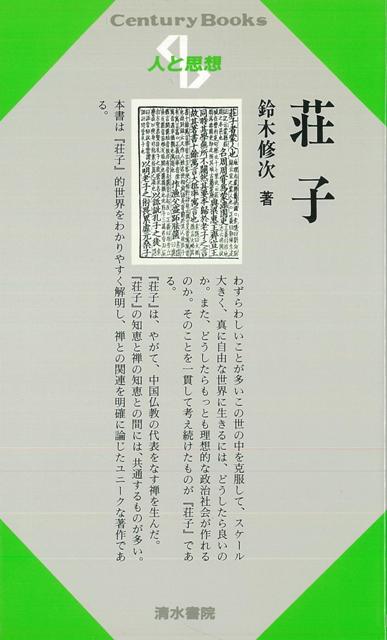 Century Books
人と思想
荘子
鈴木修次 著
わずらわしいことが多いこの世の中を克服して、スケール
大きく、真に自由な世界に生きるには、どうしたら良いの
か。また、どうしたらもっとも理想的な政治社会が作れる
のか。そのことを一貫して考え続けたものが『荘子』であ
る。
『荘子』は、やがて、中国仏教の代表をなす禅を生んだ。
『荘子』の知恵と禅の知恵との間には、共通するものが多い。
本書は『荘子』的世界をわかりやすく解明し、禅との関連を明確に論じたユニークな著作であ
る。
清水書院